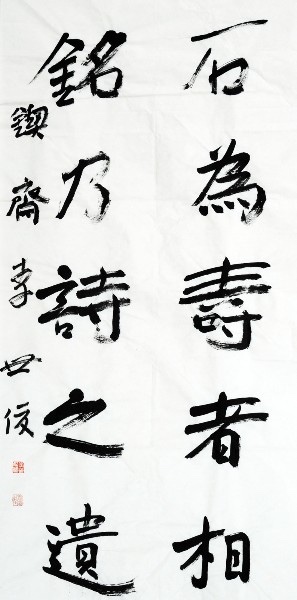 石為壽者相
銘乃詩之遺
鍥齋李世俊